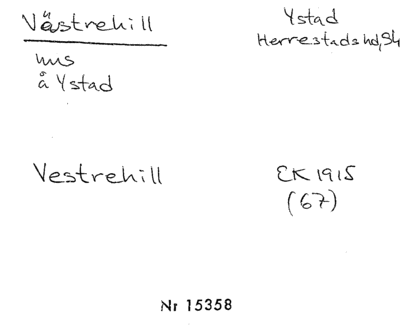 Västrehill
Ystad
Herrestads hd, Sk
hus
å Ystad
Vestrehill
EK 1915
(67)
Nr 15358